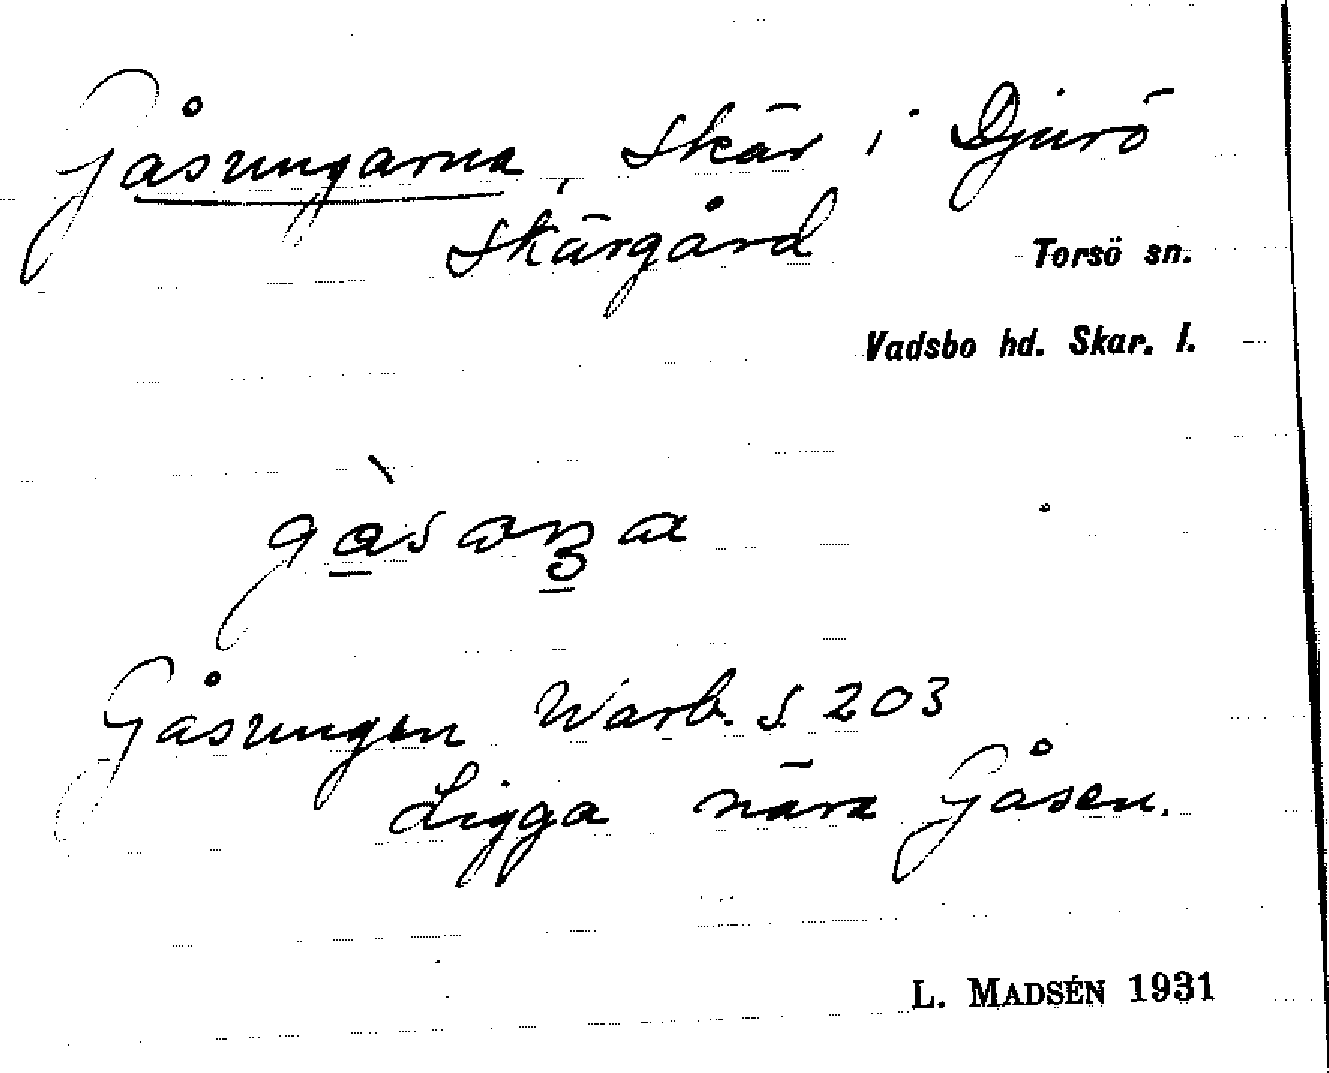 Gåsungarna, skär i Djurö
skärgård
Torsö sn.
Vadsbo hd. Skar. l.
Gåsungen Warb. S. 203
Ligga nära Gåsen.
L. MADSÉN 1931